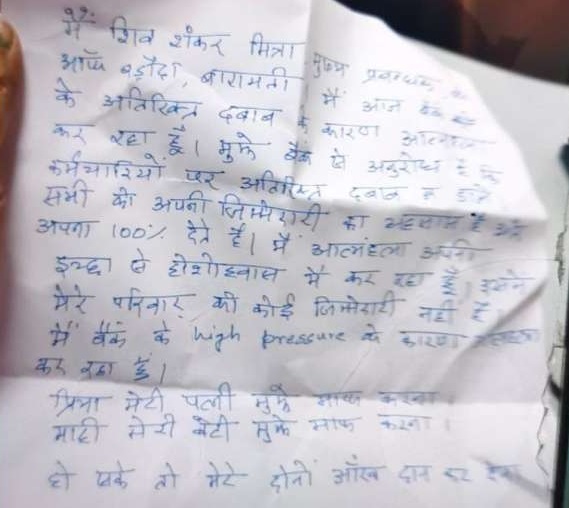 मैं शिव शंकर मित्रा मुख्य प्रबन्धक,
ऑफ बड़ौदा, बारामती मैं आज बैंक
के अतिरिक्त दबाव के कारण आत्महत्या
कर रहा हूँ। मुझे बैंक से अनुरोध है कि
कर्मचारियों पर अतिरिक्त दबाव न डाले
सभी को अपनी जिम्मेदारी का अहसास है और
अपना 100% देते है। मैं आत्महत्या अपनी
इच्छा से होशोहवास में कर रहा हूँ, इसमें
मेरे परिवार की कोई जिम्मेदारी नहीं है।
मैं बैंक के high pressure के कारण आत्महत्या
कर रहा हूँ।
प्रिया मेरी पत्नी मुझे माफ करना।
माही मेरी बेटी मुझे माफ करना।
हो सके तो मेरे दोनों आँख दान कर